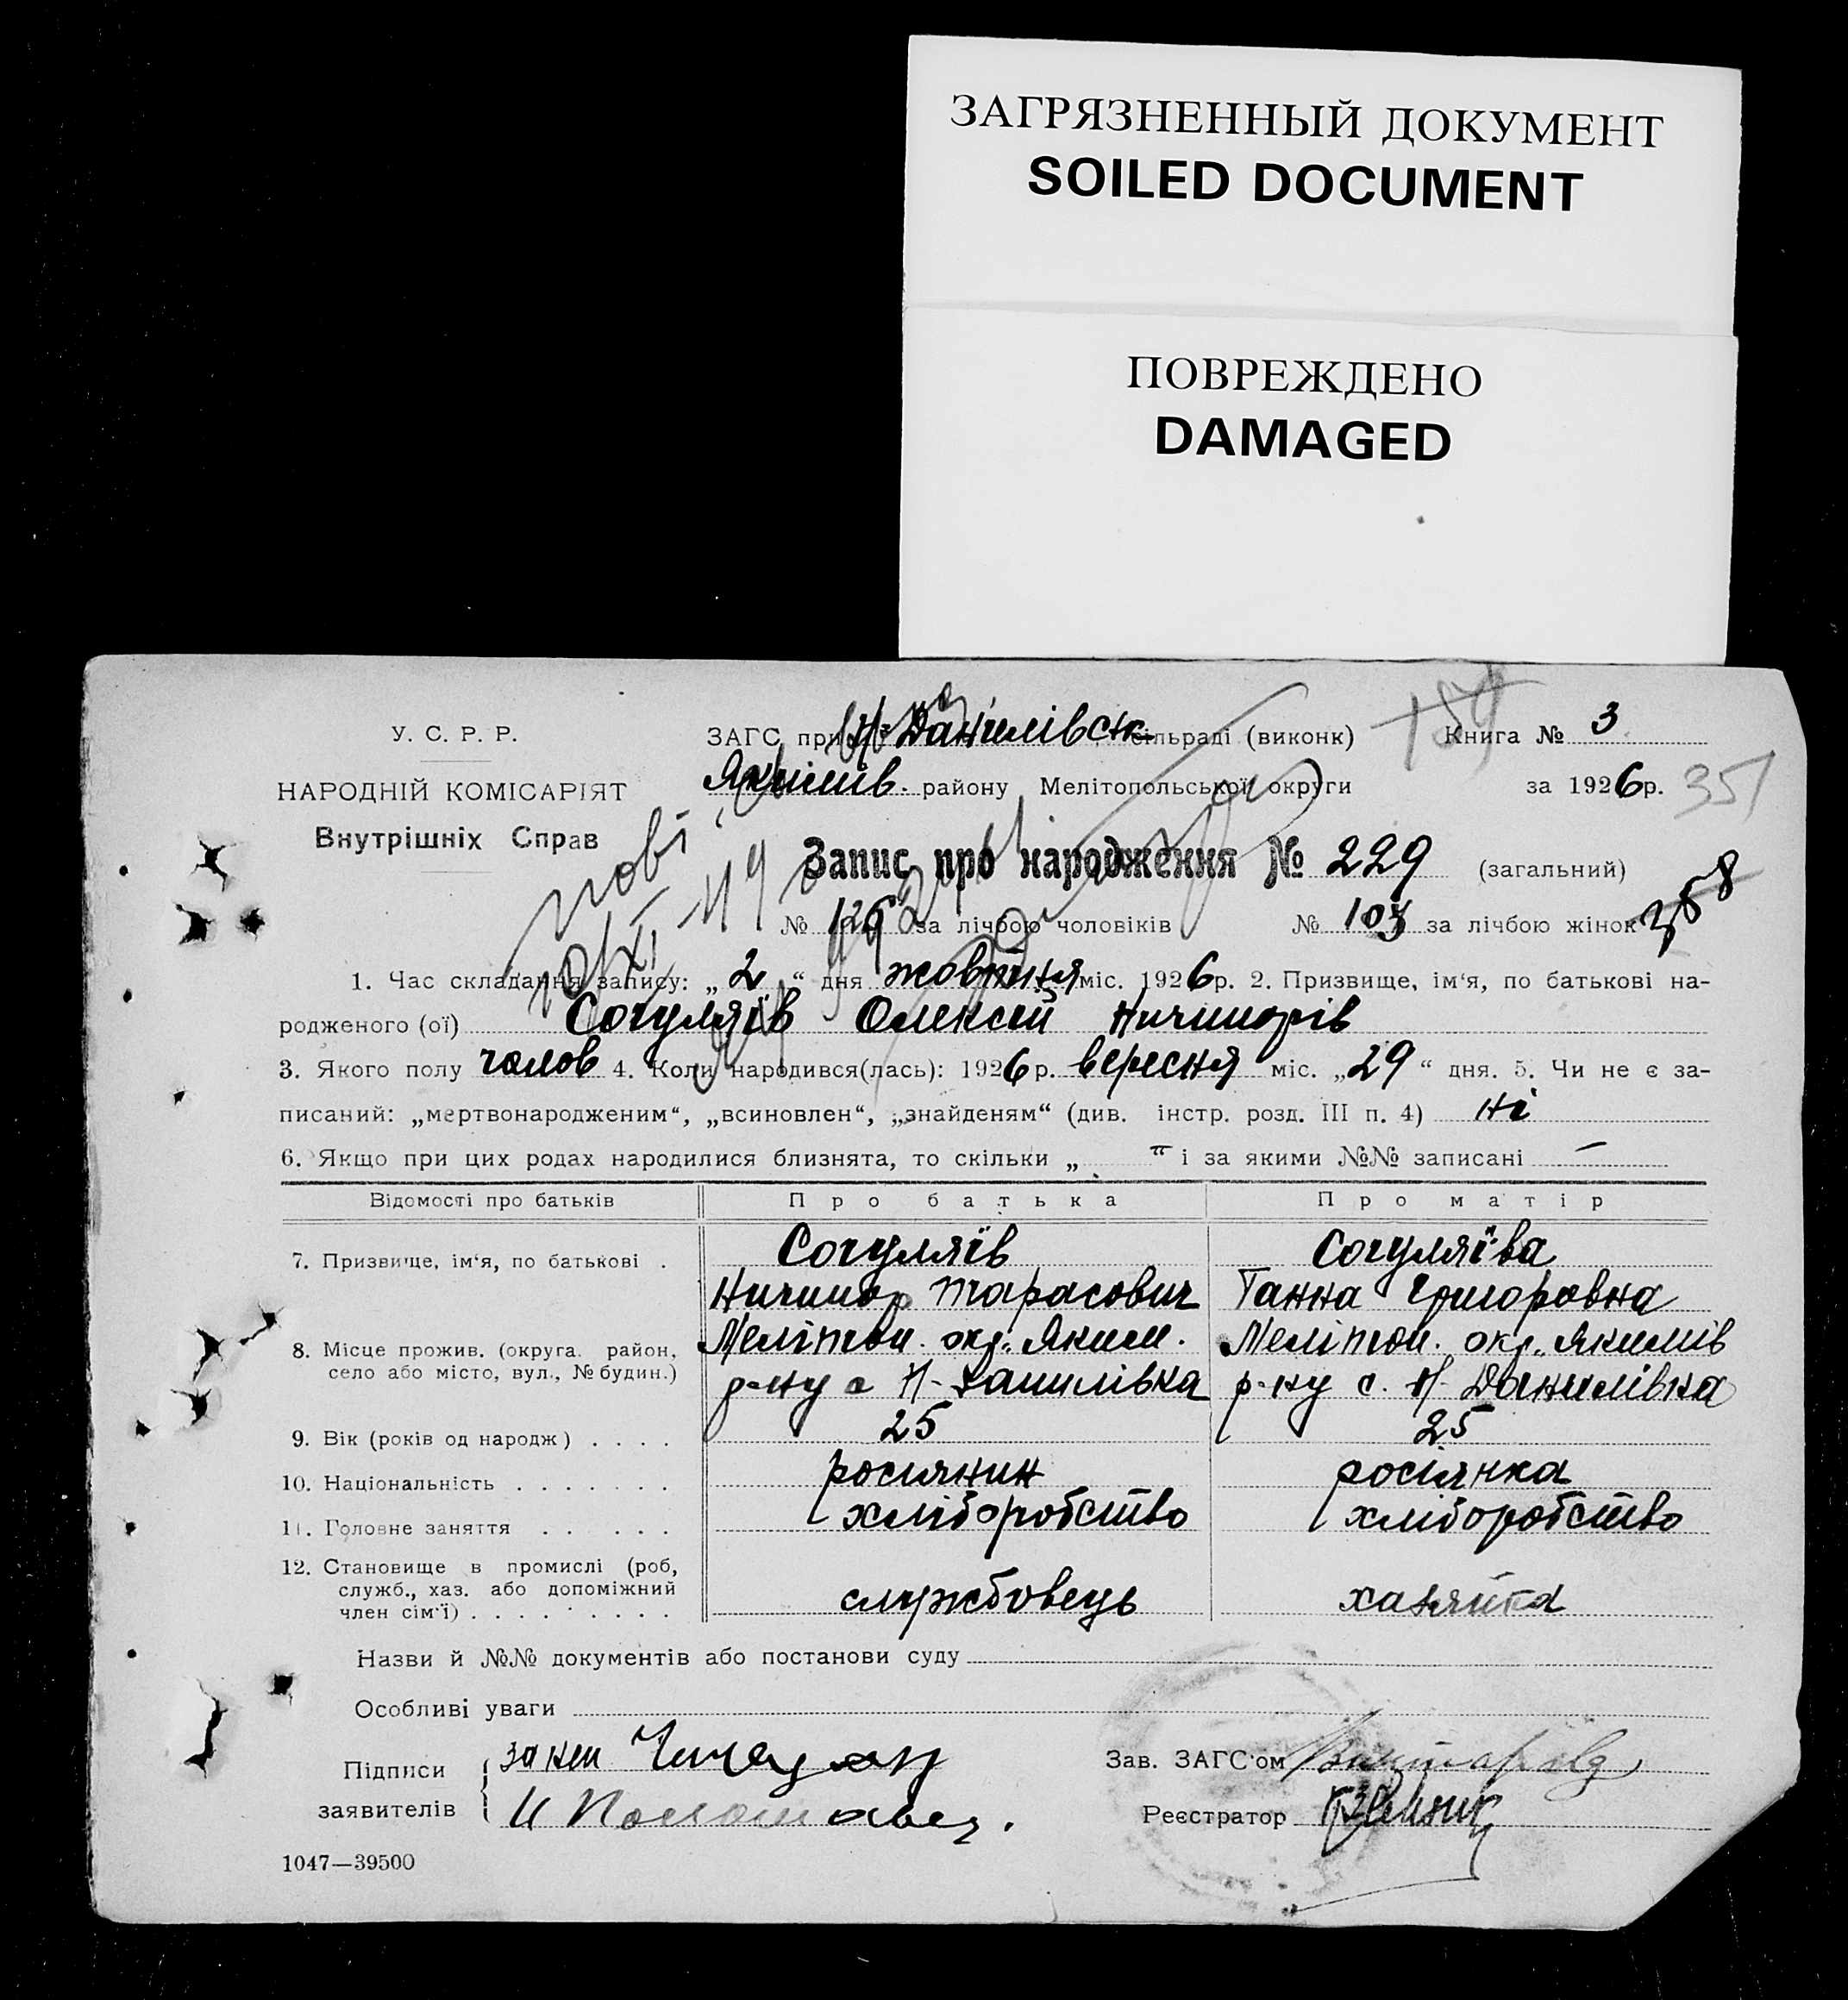 ЗАГРЯЗНЕННЫЙ ДОКУМЕНТ
SOILED DOCUMENT
ПОВРЕЖДЕНО
DAMAGED
У. С. Р. Р.
НАРОДНІЙ КОМІСАРІЯТ
Внутрішніх Справ
ЗАГС при Н-Данилівськ. сільраді (виконк) Книга № 3
Якимів. району Мелітопольської округи за 1926 р. 351
Запис про народження № 229 (загальний)
№ 126 за лічбою чоловіків № 103 за лічбою жінок 358
1. Час складання запису: „2“ дня жовтня міс. 1926 р. 2. Призвище, ім‘я, по батькові на-
родженого (ої) Согуляїв Олексій Ничипорів
3. Якого полу чолов 4. Коли народився(лась): 1926 р. вересня міс. „29“ дня. 5. Чи не є за-
писаний: „мертвонародженим“, „всиновлен“, „знайденям“ (див. інстр. розд. III п. 4) ні
6. Якщо при цих родах народилися близнята, то скільки „ “ і за якими №№ записані —
Відомості про батьків Про батька Про матір
7. Призвище, ім‘я, по батькові . Согуляїв Согуляїва
Ничипор Тарасович Ганна Григоровна
8. Місце прожив. (округа. район, село або місто, вул., № будин.) Меліптоп. окр., Яким. Меліптоп. окр., Якимів
р-ну с Н-Данилівка р-ну с. Н-Данилівка
9. Вік (років од народж) . . . . 25 25
10. Національність . . . . . . . росіянин росіянка
11. Головне заняття . . . . . хліборобство хліборобство
12. Становище в промислі (роб,
служб., хаз. або допоміжний
член сім‘ї) . . . . . . . . . службовець хазяйка
Назви й №№ документів або постанови суду
Особливі уваги
Підписи
заявителів
Зав. ЗАГС‘ом
Реєстратор
1047—39500